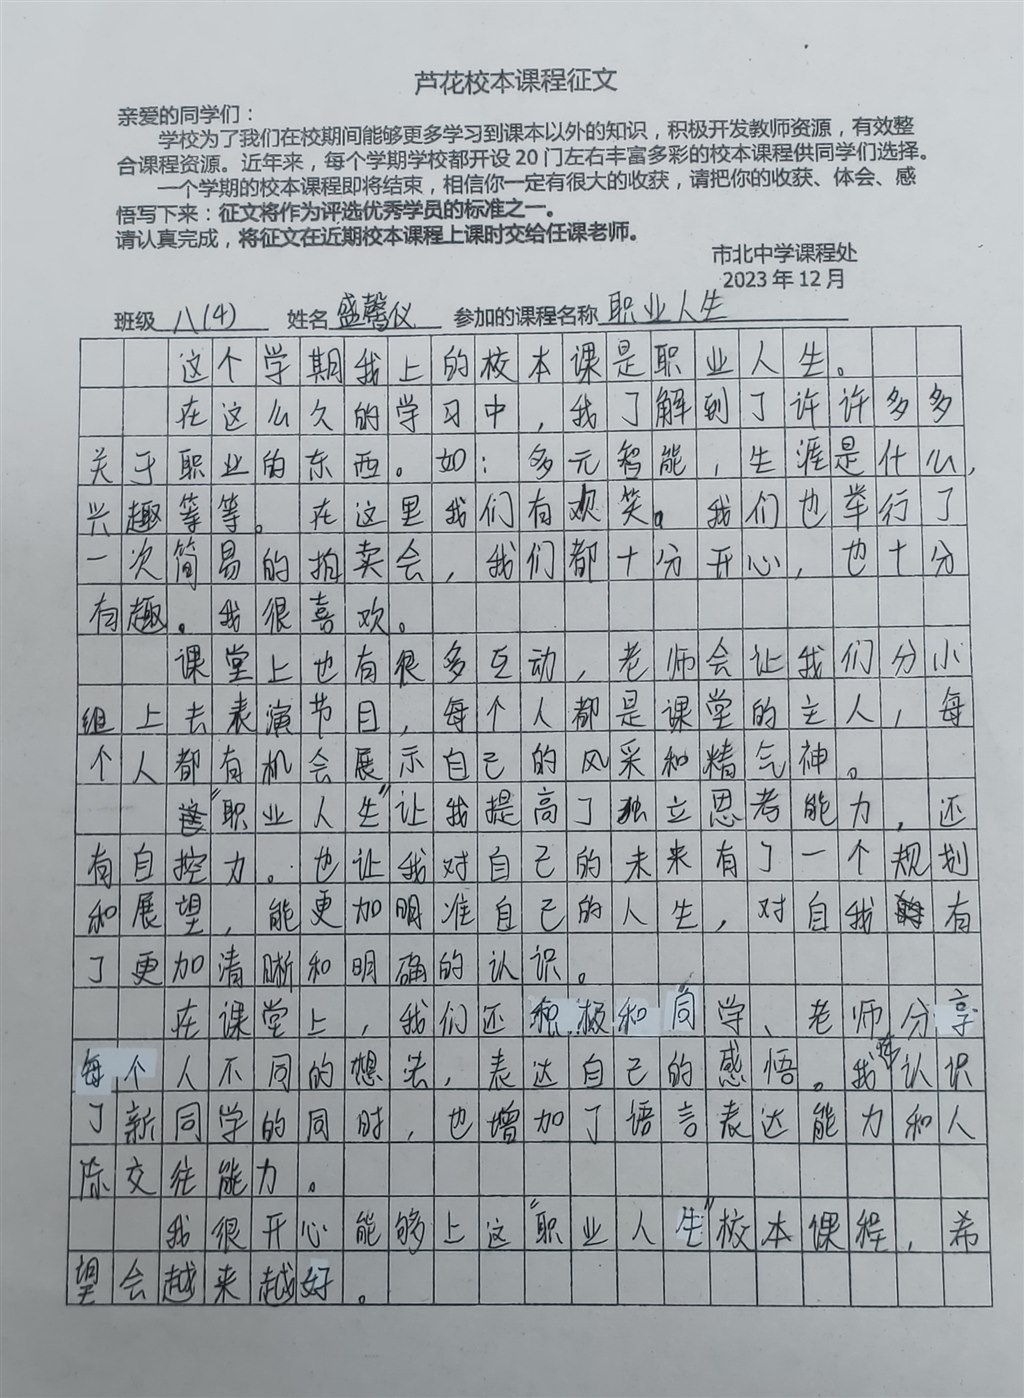 芦花校本课程征文
亲爱的同学们：
学校为了我们在校期间能够更多学习到课本以外的知识，积极开发教师资源，有效整
合课程资源。近年来，每个学期学校都开设 20 门左右丰富多彩的校本课程供同学们选择。
一个学期的校本课程即将结束，相信你一定有很大的收获，请把你的收获、体会、感
悟写下来：征文将作为评选优秀学员的标准之一。
请认真完成，将征文在近期校本课程上课时交给任课老师。
市北中学课程处
2023 年 12 月
班级 八(4) 姓名 盛馨仪 参加的课程名称 职业人生
这个学期我上的校本课是职业人生。
在这么久的学习中，我了解到了许许多多
关于职业的东西。如：多元智能，生涯是什么，
兴趣等等。在这里我们有欢笑。我们也举行了
一次简易的拍卖会，我们都十分开心，也十分
有趣。我很喜欢。
课堂上也有很多互动，老师会让我们分小
组上去表演节目，每个人都是课堂的主人，每
个人都有机会展示自己的风采和精气神。
这“职业人生”让我提高了独立思考能力，还
有自控力。也让我对自己的未来有了一个规划
和展望，能更加明准自己的人生，对自我有
了更加清晰和明确的认识。
在课堂上，我们还积极和同学、老师分享
每个人不同的想法，表达自己的感悟。我在认识
了新同学的同时，也增加了语言表达能力和人
际交往能力。
我很开心能够上这“职业人生”校本课程，希
望会越来越好。